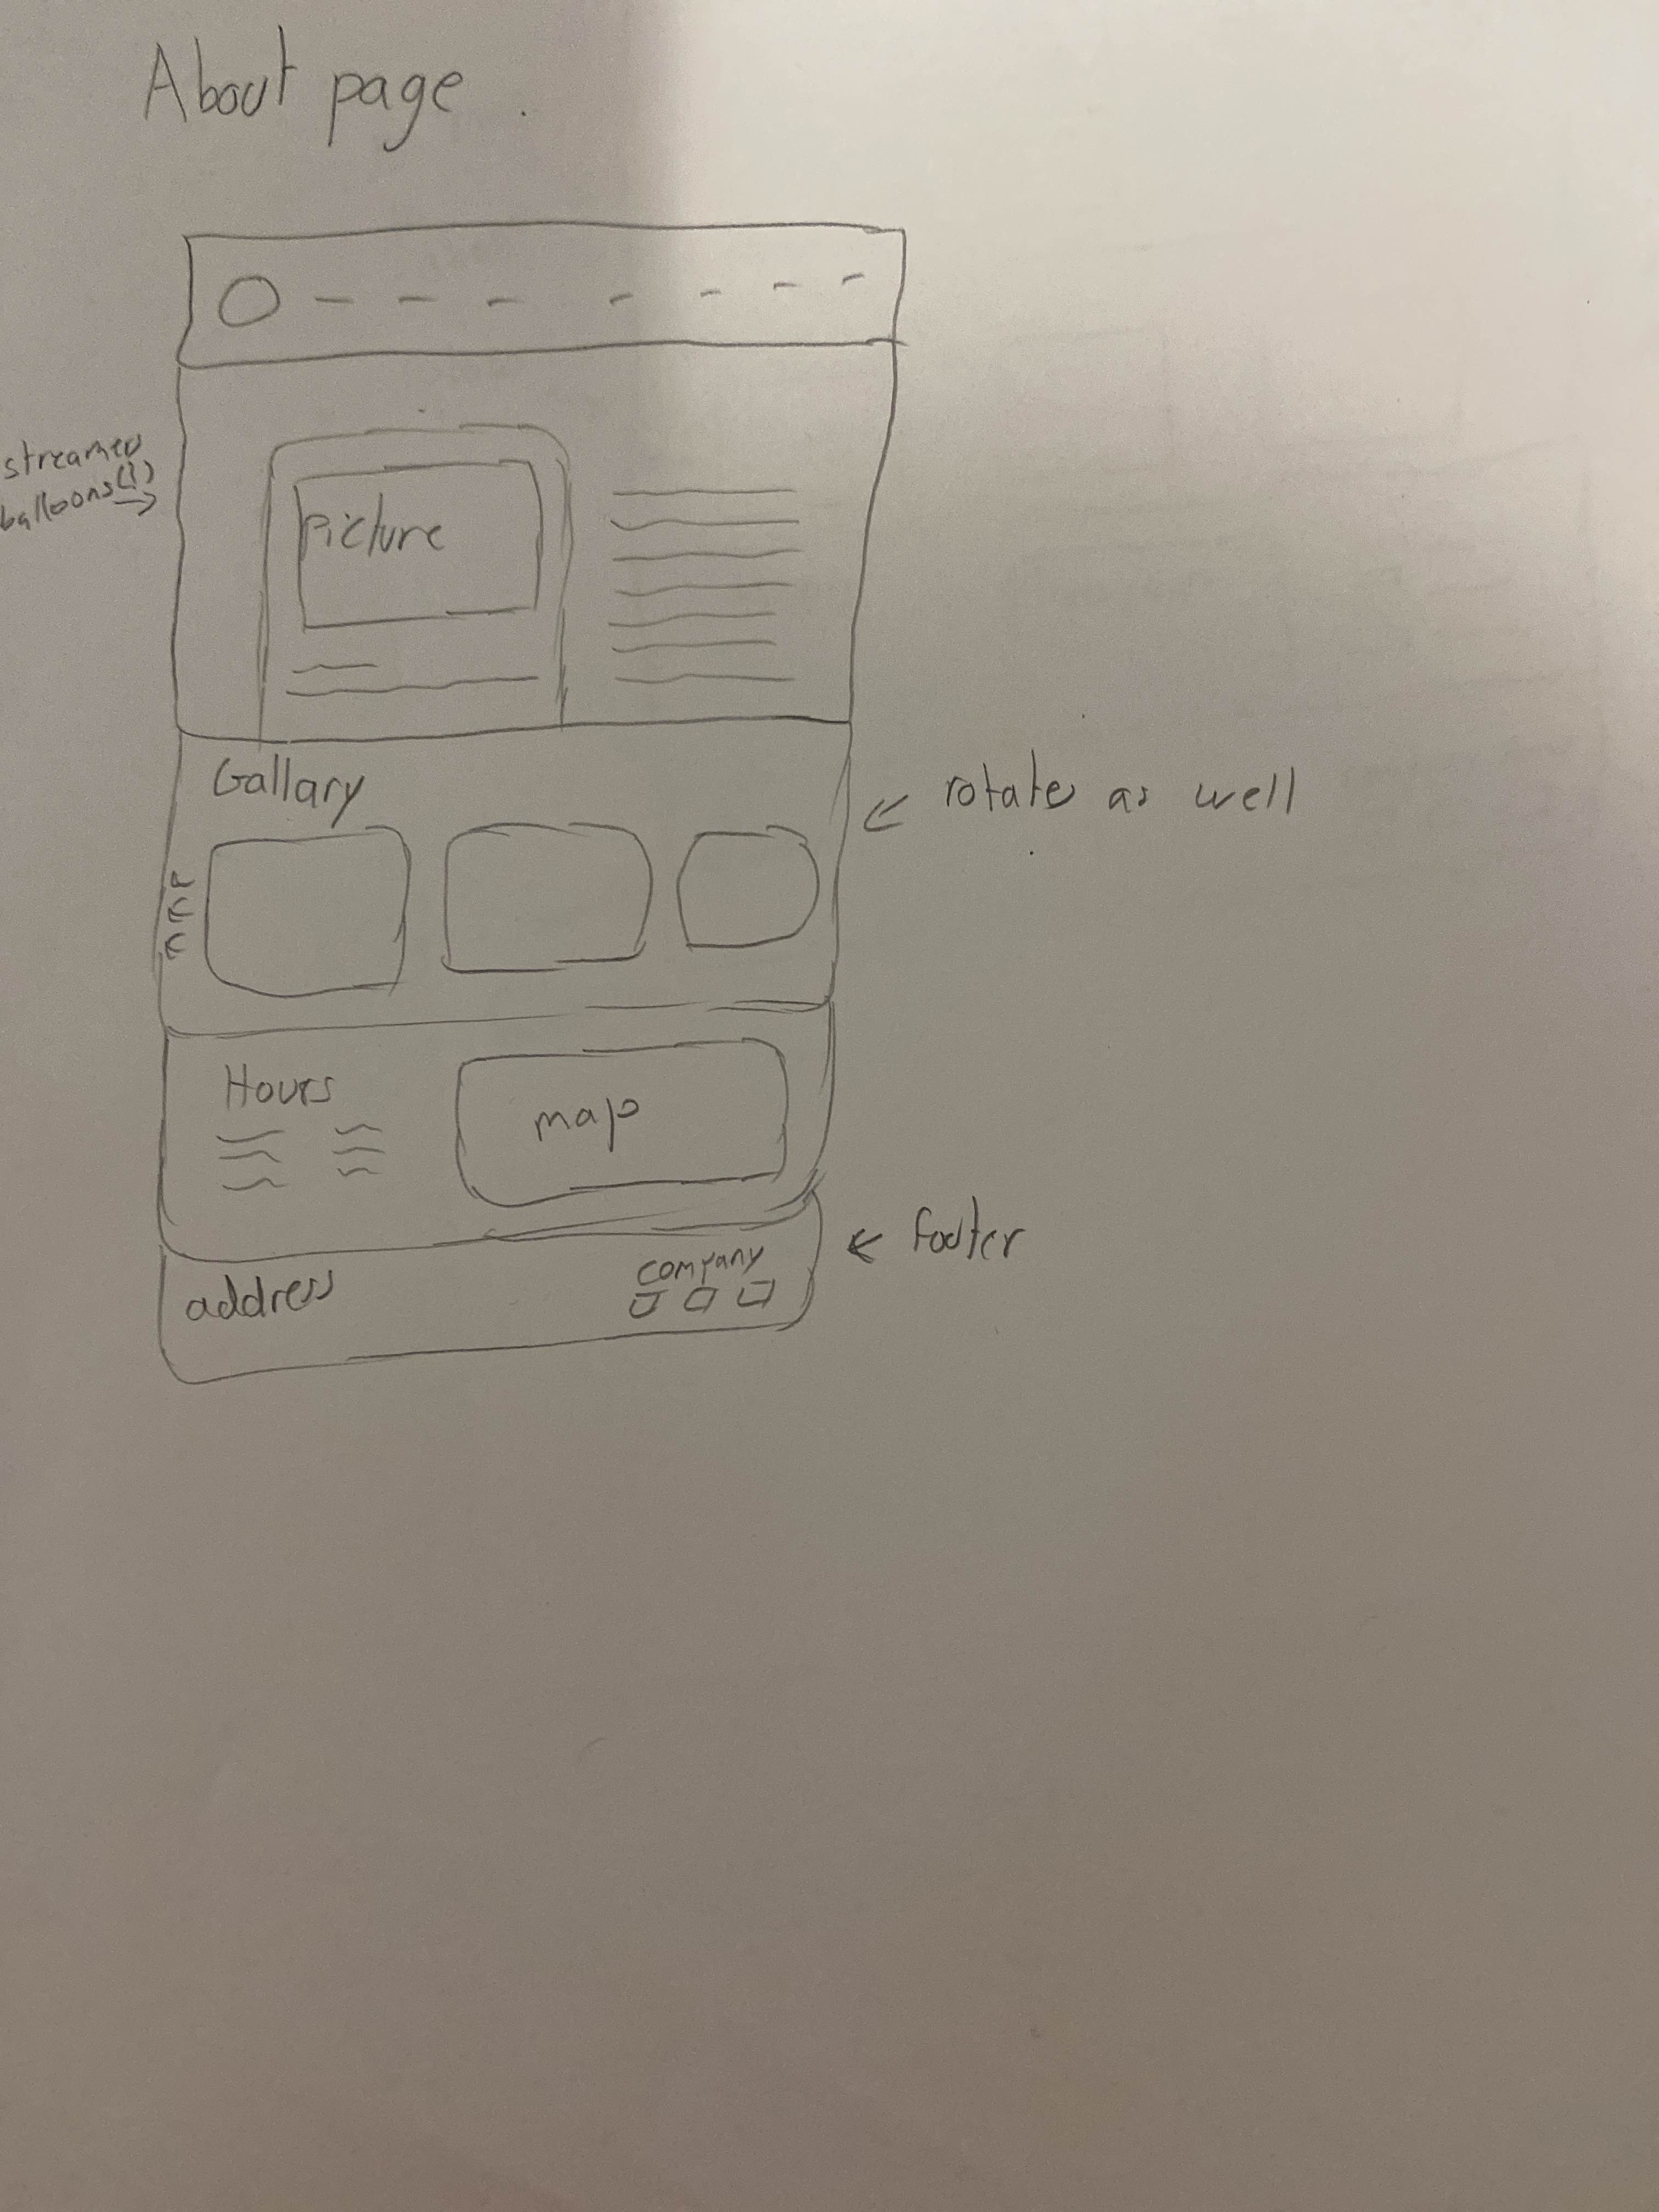 About page.
streamer
balloons(!)
Picture
Gallary
rotate as well
Hours
map
footer
company
address